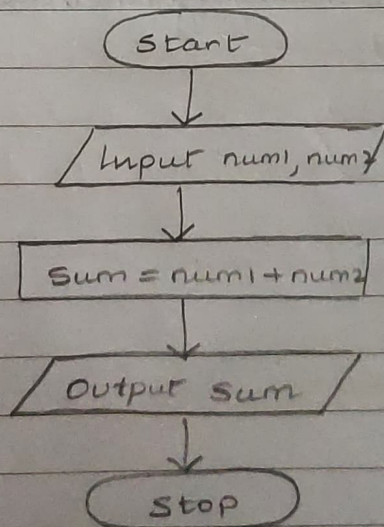 Start
Input num1, num2
Sum = num1 + num2
Output Sum
Stop